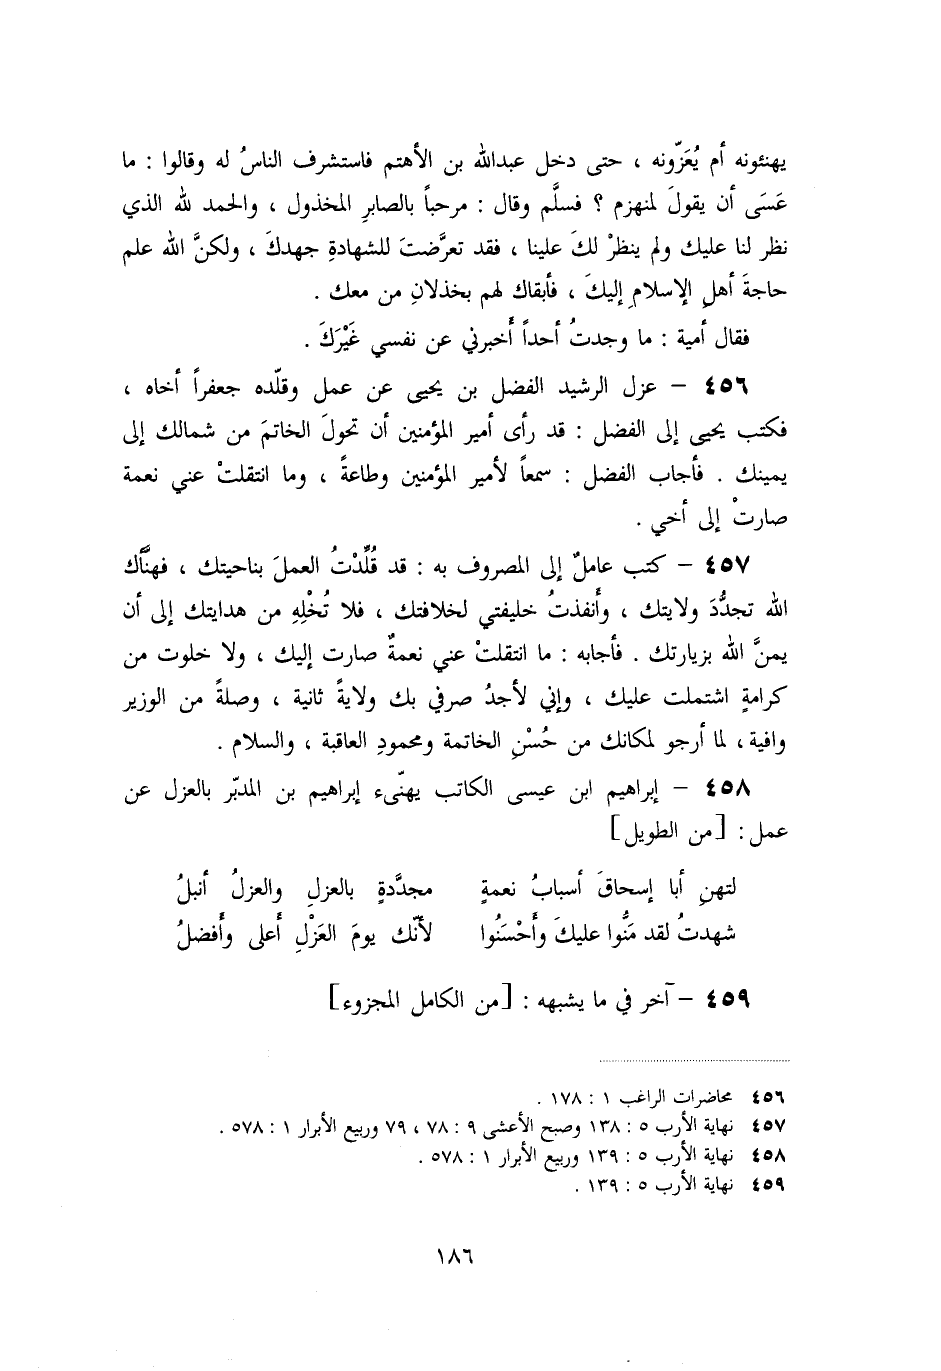 يهنئونه أم يُعَزّونه ، حتى دخل عبدالله بن الأهتم فاستشرف الناسُ له وقالوا : ما
عَسَى أن يقولَ لمنهزم ؟ فسلَّم وقال : مرحباً بالصابرِ المخذول ، والحمد لله الذي
نظر لنا عليك ولم ينظرْ لكَ علينا ، فقد تعرَّضتَ للشهادةِ جهدكَ ، ولكنَّ الله علم
حاجةَ أهلِ الإسلامِ إليكَ ، فأبقاك لهم بخذلانِ من معك .
فقال أمية : ما وجدتُ أحداً أَخبرني عن نفسي غَيْرَكَ .
٤٥٦ – عزل الرشيد الفضل بن يحيى عن عمل وقلّده جعفراً أخاه ،
فكتب يحيى إلى الفضل : قد رأى أمير المؤمنين أن تحولَ الخاتمَ من شمالك إلى
يمينك . فأجاب الفضل : سمعاً لأمير المؤمنين وطاعةً ، وما انتقلتْ عني نعمة
صارتْ إلى أخي .
٤٥٧ – كتب عاملٌ إلى المصروف به : قد قُلِّدْتُ العملَ بناحيتك ، فهنَّاك
الله تجدُّدَ ولايتك ، وأَنفذتُ خليفتي لخلافتك ، فلا تُخْلِهِ من هدايتك إلى أن
يمنَّ الله بزيارتك . فأجابه : ما انتقلتْ عني نعمةٌ صارت إليك ، ولا خلوت من
كرامةٍ اشتملت عليك ، وإني لأجدُ صرفي بك ولايةً ثانية ، وصلةً من الوزير
وافية ، لما أرجو لمكانك من حُسْنِ الخاتمة ومحمودِ العاقبة ، والسلام .
٤٥٨ – إبراهيم ابن عيسى الكاتب يهنّىء إبراهيم بن المدبّر بالعزل عن
عمل : [من الطويل]
لتهنِ أبا إسحاقَ أسبابُ نعمةٍ مجدَّدةٍ بالعزلِ والعزلُ أنبلُ
شهدتُ لقد مَنُّوا عليكَ وأَحْسَنُوا لأنّك يومَ العَزْلِ أَعلى وأَفضلُ
٤٥٩ – آخر في ما يشبهه : [من الكامل المجزوء]
٤٥٦ محاضرات الراغب ١ : ١٧٨ .
٤٥٧ نهاية الأرب ٥ : ١٣٨ وصبح الأعشى ٩ : ٧٨ ، ٧٩ وربيع الأبرار ١ : ٥٧٨ .
٤٥٨ نهاية الأرب ٥ : ١٣٩ وربيع الأبرار ١ : ٥٧٨ .
٤٥٩ نهاية الأرب ٥ : ١٣٩ .
١٨٦